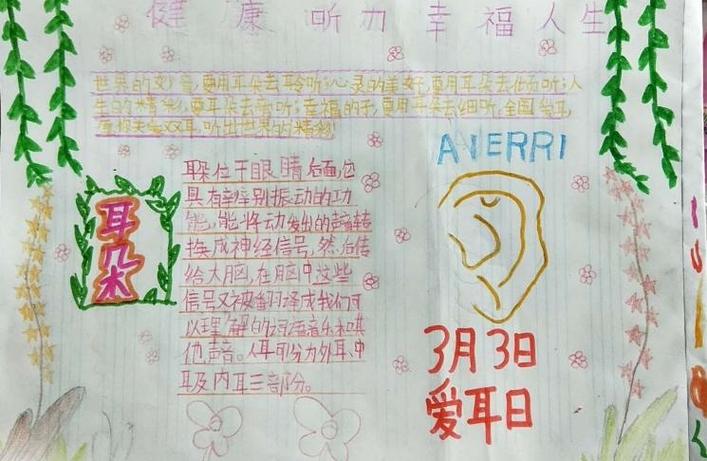 健康听力幸福人生
世界的妙音,要用耳朵去聆听;心灵的美好,要用耳朵去倾听;人
生的精彩,要耳朵去 听;幸福的 ,要用耳朵去细听。全国爱耳
双耳,听出世界的精彩!
AIERRI
耳朵位于眼睛后面,它
具有辨别振动的功
能,能将动发出的声音转
换成神经信号,然后传
给大脑,在脑中这些
信号又被翻译成我们可
以理解的词语音乐和其
他声音。人耳可分为外耳、中
耳及内耳三部分。
耳朵
3月3日
爱耳日